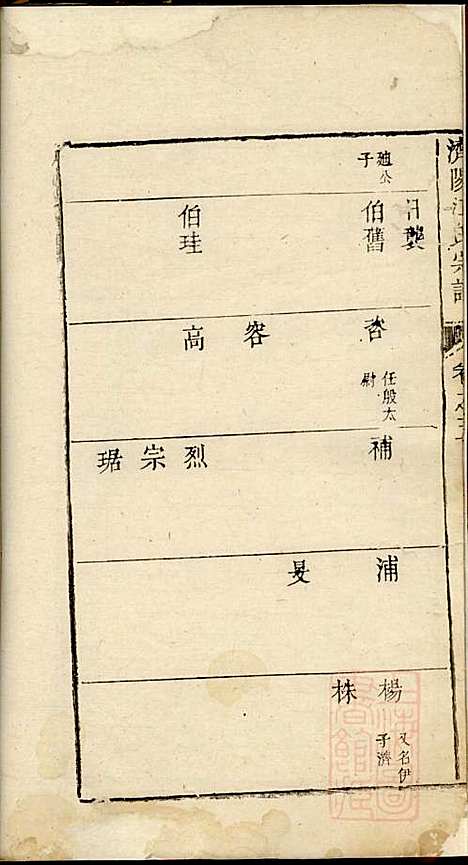 濟陽江氏宗譜
卷之三
廸公子
伯舊
伯珪
容
高
任殷太尉
補
烈
宗
琚
浦
旻
楊
又名伊子濟
株